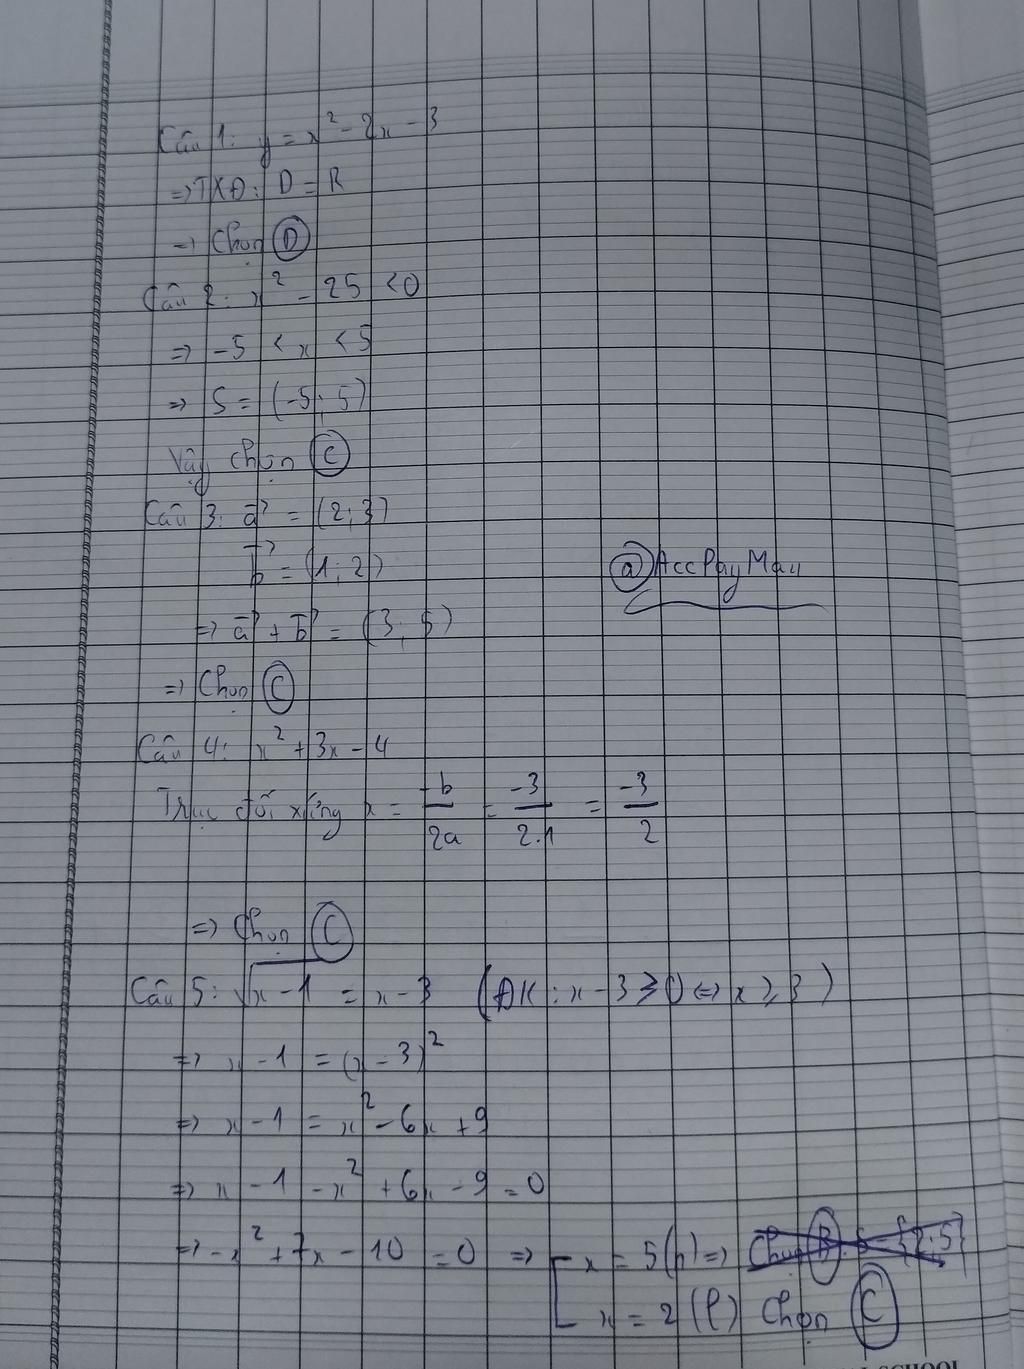 Câu 1: y = x² - 2x - 3
=> TXĐ: D = R
=> Chọn D
Câu 2: x² - 25 < 0
=> -5 < x < 5
=> S = (-5; 5)
Vậy chọn C
Câu 3: a⃗ = (2; 3)
b⃗ = (1; 2)
@AccPayMau
=> a⃗ + b⃗ = (3; 5)
=> Chọn C
Câu 4: x² + 3x - 4
Trục đối xứng x = -b/2a = -3/2.1 = -3/2
=> Chọn C
Câu 5: √x - 1 = x - 3 (ĐK: x - 3 ≥ 0 <=> x ≥ 3)
=> x - 1 = (x - 3)²
=> x - 1 = x² - 6x + 9
=> x - 1 - x² + 6x - 9 = 0
=> -x² + 7x - 10 = 0 => [ x = 5 (n) => Chọn B
x = 2 (l) Chọn C
SCHOOL